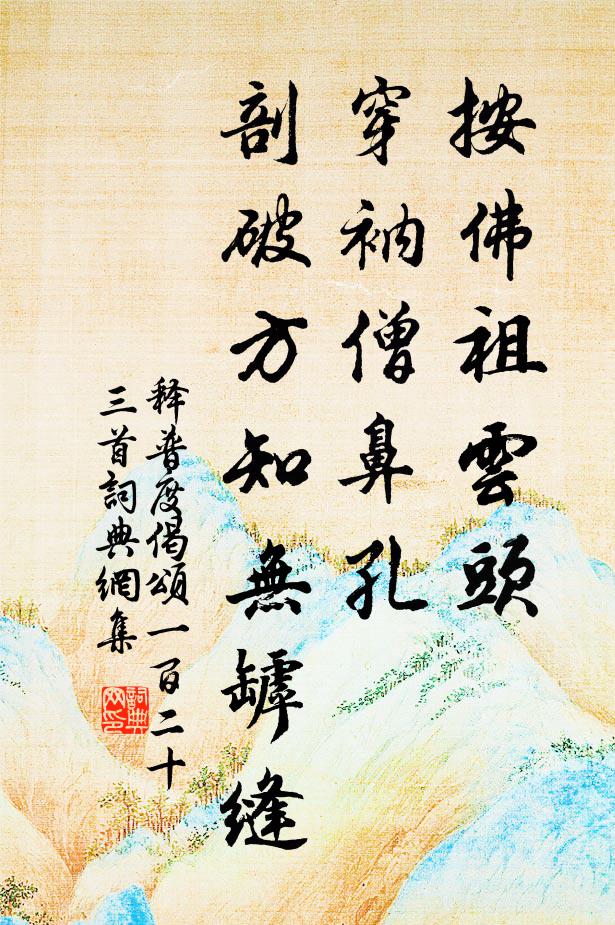 按佛祖雲頭
穿衲僧鼻孔
剖破方知無罅縫
释普度偈頌一百二十
三首詞典網集
詞典
网印